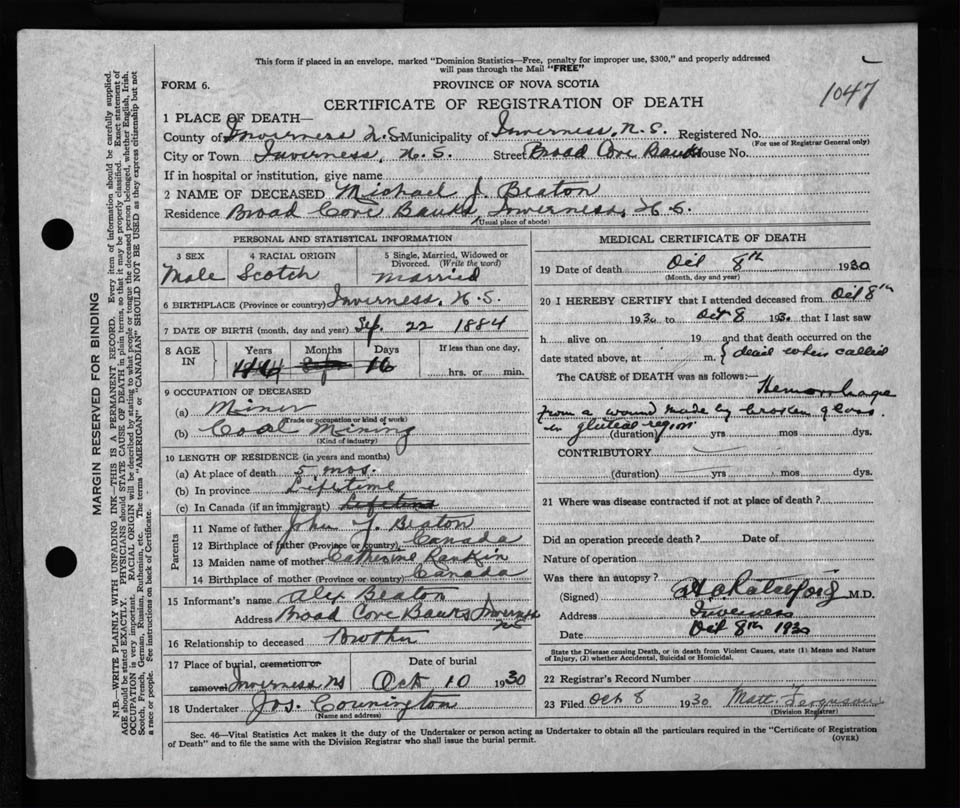 This form if placed in an envelope, marked "Dominion Statistics—Free, penalty for improper use, $300," and properly addressed
will pass through the Mail "FREE"
FORM 6.
PROVINCE OF NOVA SCOTIA
1047
CERTIFICATE OF REGISTRATION OF DEATH
1 PLACE OF DEATH—
County of Inverness N.S. Municipality of Inverness, N.S. Registered No.
(For use of Registrar General only)
City or Town Inverness, N.S. Street Broad Cove Banks House No.
If in hospital or institution, give name
2 NAME OF DECEASED Michael J. Beaton
Residence Broad Cove Banks, Inverness, N.S.
(Usual place of abode)
PERSONAL AND STATISTICAL INFORMATION
3 SEX 4 RACIAL ORIGIN 5 Single, Married, Widowed or
Divorced. (Write the word)
Male Scotch Married
6 BIRTHPLACE (Province or country) Inverness, N.S.
7 DATE OF BIRTH (month, day and year) Sep. 22 1884
8 AGE IN Years Months Days If less than one day,
16 hrs. or min.
9 OCCUPATION OF DECEASED
(a) Miner
(Trade or occupation or kind of work)
(b) Coal Mining
(Kind of industry)
10 LENGTH OF RESIDENCE (in years and months)
(a) At place of death 5 mos.
(b) In province Lifetime
(c) In Canada (if an immigrant) Lifetime
Parents
11 Name of father John J. Beaton
12 Birthplace of father (Province or country) Canada
13 Maiden name of mother Catherine Rankin
14 Birthplace of mother (Province or country) Canada
15 Informant's name Alex Beaton
Address Broad Cove Banks Inverness
NS
16 Relationship to deceased Brother
17 Place of burial, cremation or Date of burial
removal Inverness NS Oct 10 1930
18 Undertaker Jos. Connington
(Name and address)
MEDICAL CERTIFICATE OF DEATH
19 Date of death Oct 8th 1930
(Month, day and year)
20 I HEREBY CERTIFY that I attended deceased from Oct 8th
1930 to Oct 8 1930 that I last saw
h alive on 19 and that death occurred on the
date stated above, at m. { dead when called
The CAUSE of DEATH was as follows:— Hemorrhage
from a wound made by broken glass.
in gluteal region
(duration) yrs mos dys.
CONTRIBUTORY
(duration) yrs mos dys.
21 Where was disease contracted if not at place of death?
Did an operation precede death? Date of
Nature of operation
Was there an autopsy?
(Signed) M.D.
Address Inverness
Date Oct 8th 1930
State the Disease causing Death, or in death from Violent Causes, state (1) Means and Nature
of Injury, (2) whether Accidental, Suicidal or Homicidal.
22 Registrar's Record Number
23 Filed Oct 8 1930 Matt. Ferguson
(Division Registrar)
Sec. 46—Vital Statistics Act makes it the duty of the Undertaker or person acting as Undertaker to obtain all the particulars required in the "Certificate of Registration
of Death" and to file the same with the Division Registrar who shall issue the burial permit.
(OVER)
MARGIN RESERVED FOR BINDING
N.B.—WRITE PLAINLY WITH UNFADING INK—THIS IS A PERMANENT RECORD. Every item of information should be carefully supplied.
AGE should be stated EXACTLY. PHYSICIANS should STATE CAUSE OF DEATH in plain terms, so that it may be properly classified. Exact statement of
OCCUPATION is very important. RACIAL ORIGIN will be described by stating to what people or tongue the deceased person belonged, whether English, Irish,
Scotch, French, German, Russian, Ruthenian, etc. The terms "AMERICAN" or "CANADIAN" SHOULD NOT BE USED as they express citizenship but not
a race or people. See instructions on back of Certificate.